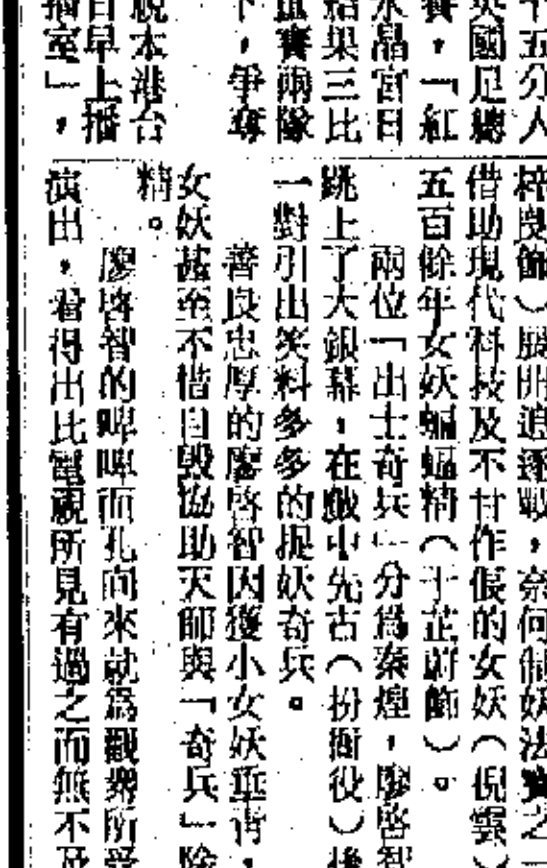 十五分人
英國足總
賽，「紅
水晶宮日
結果三比
血賽兩隊
下，爭奪
視本港台
日早上播
播室」，
梓良飾）展開追逐戰，奈何制妖法寶之一
借助現代科技及不甘作倀的女妖（倪雲
五百餘年女妖蝙蝠精（于芷蔚飾）。
兩位「出土奇兵」分爲秦煌，廖啓智
跳上了大銀幕，在戲中先古（扮衙役）後
一對引出笑料多多的捉妖奇兵。
善良忠厚的廖啓智因獲小女妖垂青，
女妖甚至不惜自毀協助天師與「奇兵」除
精。
廖啓智的啤啤面孔向來就爲觀衆所受
演出，看得出比電視所見有過之而無不及